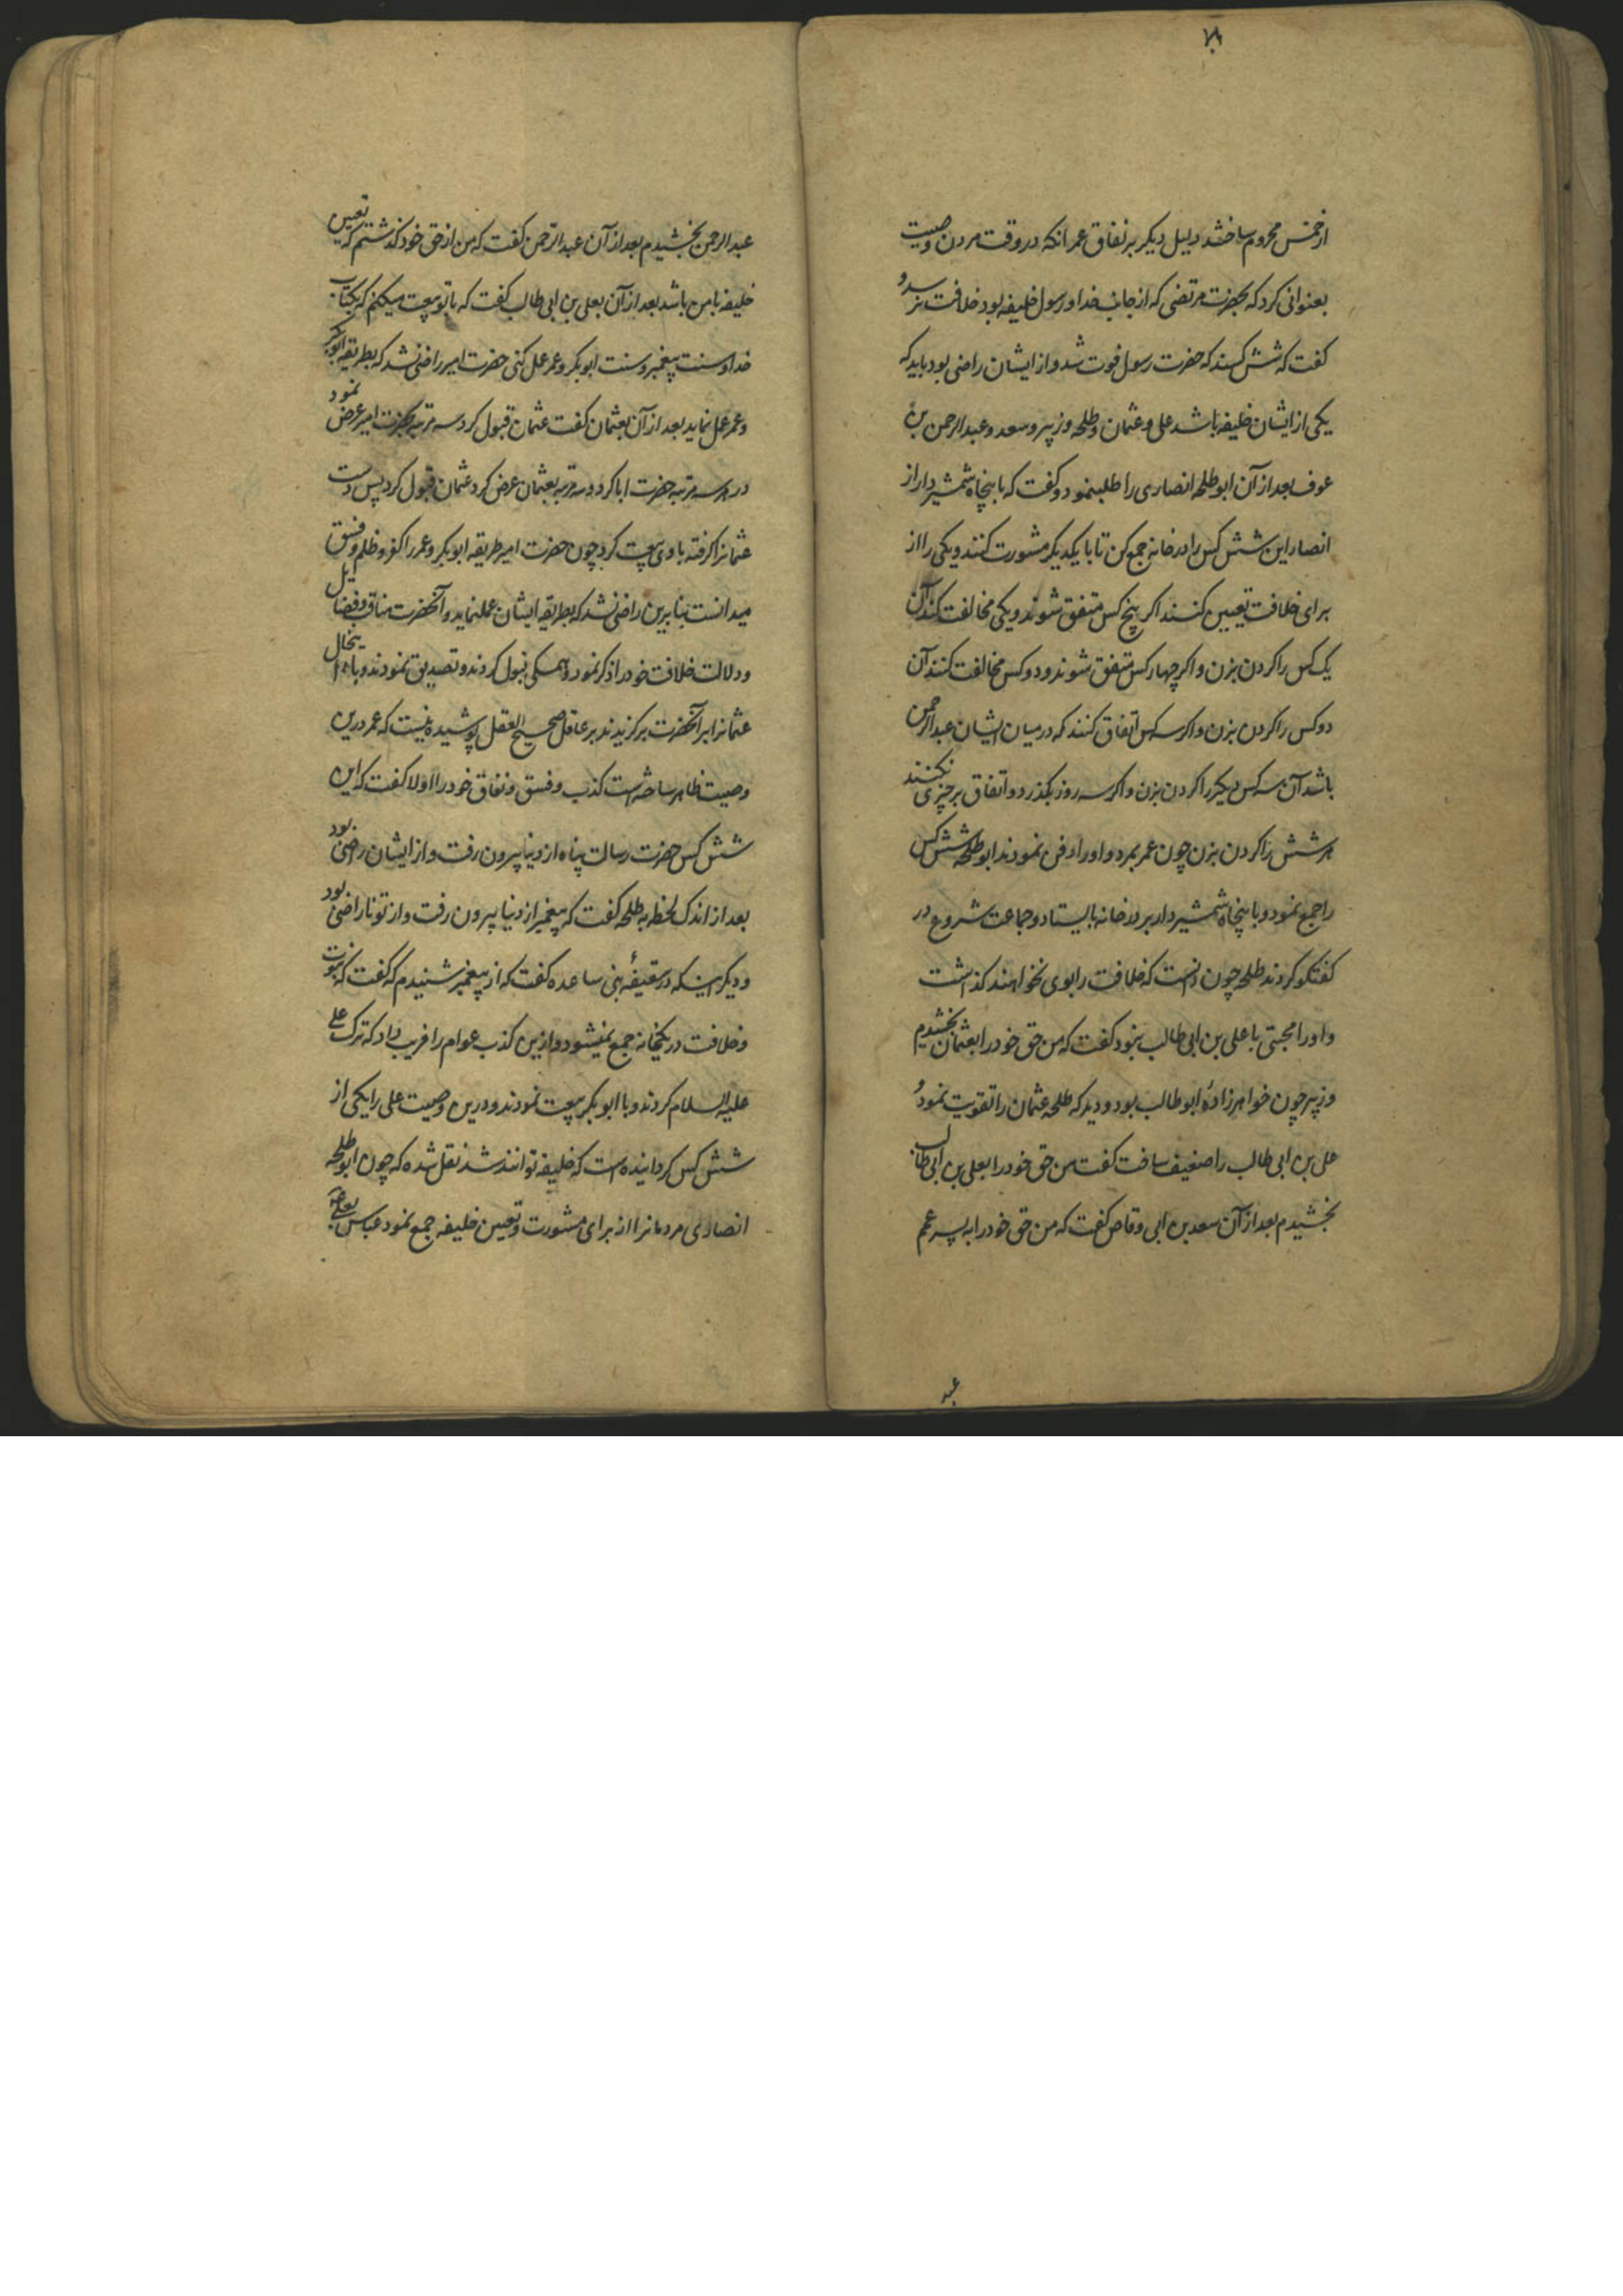 از خمس محروم ساختند دلیل دیکر بر نفاق عمر انکه در وقت مردن وصیت
بعنوانی کرد که بحضرت مرتضی که از جانب خدا و رسول خلیفه بود خلافت نرسد و
کفت که شش کسند که حضرت رسول فوت شد و از ایشان راضی بود باید که
یکی از ایشان خلیفه باشد علی و عثمان و طلحه و زبیر و سعد و عبد الرحمن بن
عوف بعد از آن ابو طلحه انصاری را طلب نمود و کفت که با پنجاه شمشیردار از
انصار این شش کس را در خانه جمع کن تا با یکدیکر مشورت کنند و یکی را از
برای خلافت تعیین کنند اکر پنج کس متفق شوند و یکی مخالفت کند آن
یک کس را کردن بزن و اکر چهار کس متفق شوند و دو کس مخالفت کنند آن
دو کس را کردن بزن و اکر سه کس اتفاق کنند که در میان ایشان عبد الرحمن
باشد آن سه کس دیکر را کردن بزن و اکر سه روز بکذرد و اتفاق بر چیزی نکنند
هر شش را کردن بزن چون عمر بمرد و او را دفن نمودند ابو طلحه شش کس
را جمع نمود و با پنجاه شمشیردار بر در خانه بایستاد و جماعت شروع در
کفتکو کردند طلحه چون دانست که خلافت را بوی نخواهند کذاشت
و او را محبتی با علی بن ابی طالب نبود کفت که من حق خود را بعثمان بخشیدم
و زبیر چون خواهرزادهٔ ابو طالب بود و دید که طلحه عثمان را تقویت نمود و
علی بن ابی طالب را ضعیف ساخت کفت من حق خود را بعلی بن ابی طالب
بخشیدم بعد از آن سعد بن ابی وقاص کفت که من حق خود را به پسر عم
عبد
عبد الرحمن بخشیدم بعد از آن عبد الرّحمن کفت که من از حق خود کذشتم که تعیین
خلیفه با من باشد بعد از آن بعلی بن ابی طالب کفت که با تو بیعت میکنم که بکتاب
خدا و سنت پیغمبر و سنت ابو بکر و عمر عمل کنی حضرت امیر راضی نشد که بطریقه ابو بکر
و عمر عمل نماید بعد از آن بعثمان کفت عثمان قبول کرد سه مرتبه بحضرت امیر عرض نمود
در هر سه مرتبه حضرت ابا کرد و سه مرتبه بعثمان عرض کرد عثمان قبول کرد پس دست
عثمانرا کرفته با وی بیعت کرد چون حضرت امیر طریقه ابو بکر و عمر را کفر و ظلم و فسق
میدانست بنابرین راضی نشد که بطریقه ایشان عمل نماید و آنحضرت مناقب و فضایل
و دلالت خلافت خود را ذکر نمود و همکی قبول کردند و تصدیق نمودند و با اینحال
عثمانرا بر آنحضرت برکزیدند بر عاقل صحیح العقل پوشیده نیست که عمر درین
وصیت ظاهر ساخته است کذب و فسق و نفاق خود را اولا کفت که این
شش کس حضرت رسالت پناه از دنیا بیرون رفت و از ایشان راضی بود
بعد از اندک لحظه به طلحه کفت که پیغمبر از دنیا بیرون رفت و از تو ناراضی بود
و دیکر اینکه در سقیفهٔ بنی ساعده کفت که از پیغمبر شنیدم که کفت که نبوت
و خلافت در یکخانه جمع نمیشود و ازین کذب عوام را فریب داد که ترک علی
علیه السلام کردند و با ابو بکر بیعت نمودند و درین وصیت علی را یکی از
شش کس کردانیده است که خلیفه توانند شد نقل شده که چون ابو طلحه
انصاری مردمانرا از برای مشورت و تعیین خلیفه جمع نمود عباس بعلی